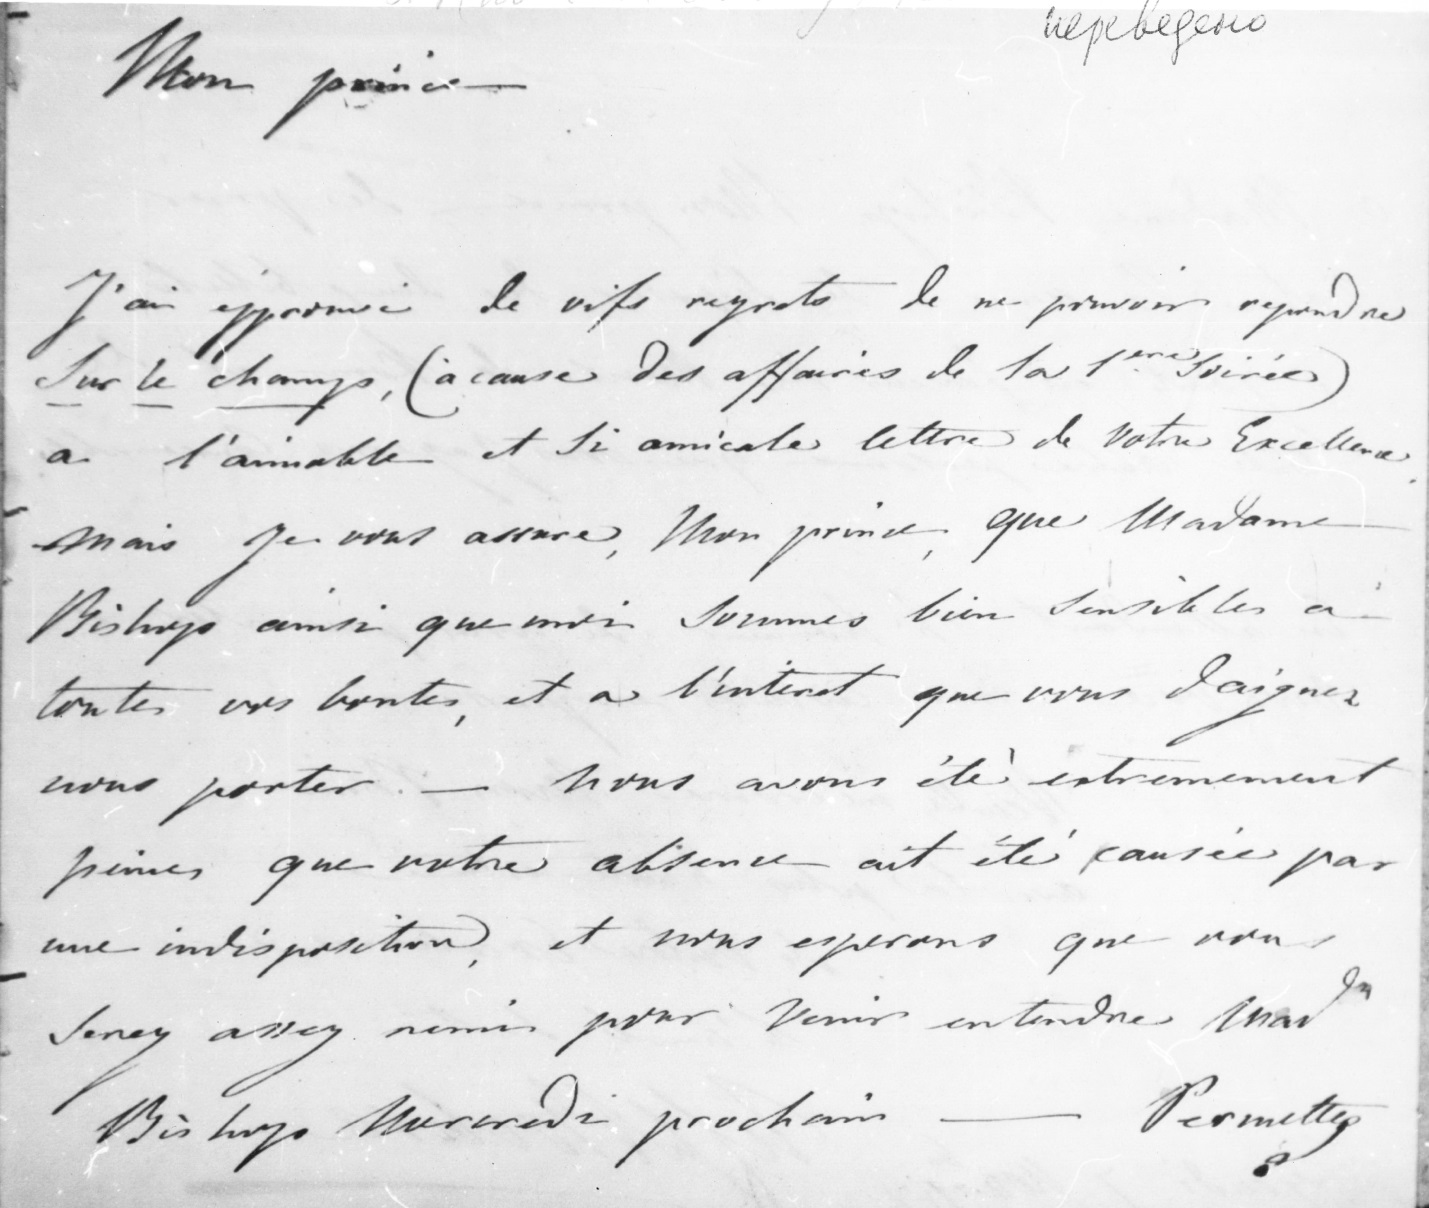 переведено
Mon prince
J'ai epprouvé de vifs regrets de ne pouvoir repondre
Sur le champs, (à cause des affaires de la 1ere Soirée)
a l'aimable et si amicale lettre de Votre Excellence.
mais je vous assure, Mon prince, que Madame
Bishop ainsi que moi sommes bien sensibles à
toutes vos bontes, et a l'interet que vous daignez
nous porter. — Nous avons été extremement
peines que votre absence ait été causée par
une indisposition, et nous esperons que vous
serez assez remis pour venir entendre Madm
Bishop Mercredi prochain — Permettez